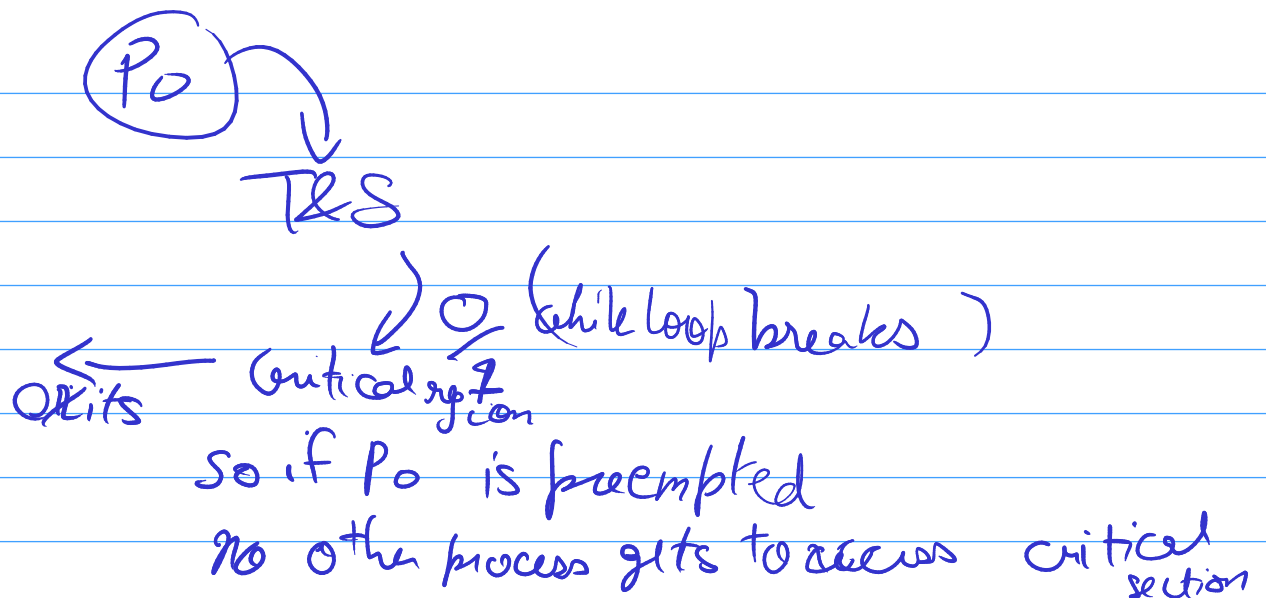 P0
T&S
0 (while loop breaks)
1
exits Critical region
so if P0 is preempted
no other process gets to access critical
section